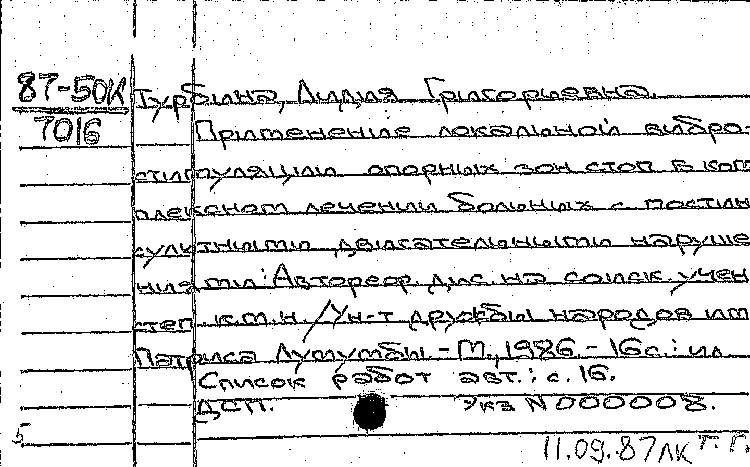 87-50К Турбина, Лидия Григорьевна.
7016 Применение локальной вибро-
стимуляции опорных зон стоп в ком
плексном лечении больных с постин
сультными двигательными наруше
ниями: Автореф. дис. на соиск. учен
степ. к.м.н. / Ун-т дружбы народов им
Патриса Лумумбы. - М., 1986. - 16 с.: ил
Список работ авт.: с. 16.
ДСП. Укз N 000008.
5
11.09.87 ЛК Т. Г.